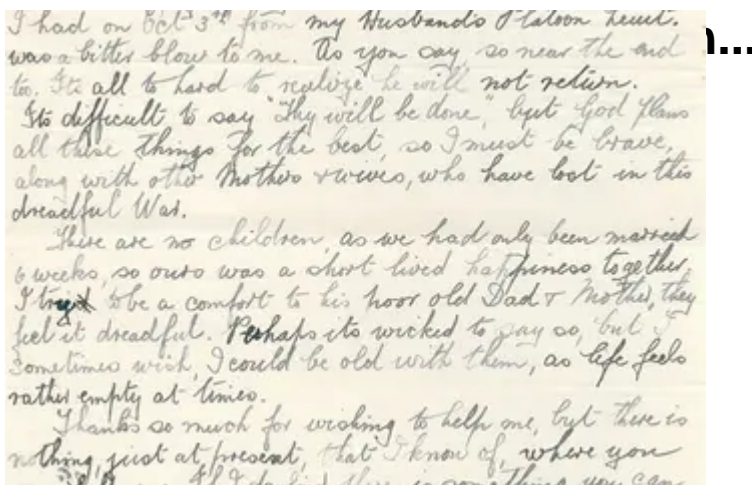 I had on Oct 3rd from my Husband's Platoon Lieut.
was a bitter blow to me. As you say, so near the end
too. Its all to hard to realize he will not return.
Its difficult to say "Thy will be done," but God plans
all these things for the best, so I must be brave,
along with other Mothers & wives, who have lost in this
dreadful War.
There are no children, as we had only been married
6 weeks, so ours was a short lived happiness together,
I try to be a comfort to his poor old Dad & Mother, they
feel it dreadful. Perhaps its wicked to say so, but I
sometimes wish, I could be old with them, as life feels
rather empty at times.
Thanks so much for wishing to help me, but there is
nothing, just at present, that I know of, where you
If I do find there is something you can